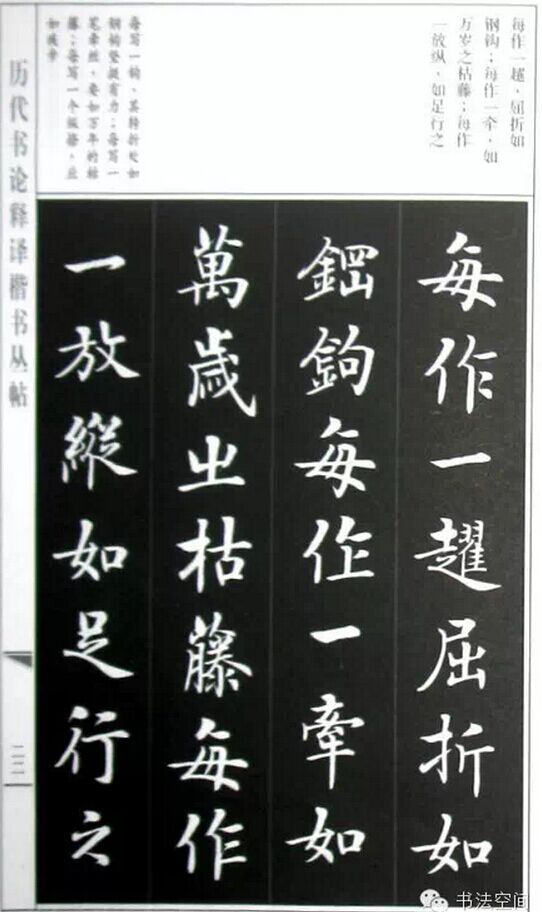 每作一趯、屈折如
钢钩；每作一牵、如
万岁之枯藤；每作
一放纵、如足行之
每写一钩、其转折处如
钢钩坚挺有力；每写一
笔牵丝、要如万年的枯
藤；每写一个纵捺、应
如徒步
每作一趯屈折如
鋼鉤每作一牽如
萬歲㞢枯藤每作
一放縱如足行之
历代书论释译楷书丛帖
二二
书法空间